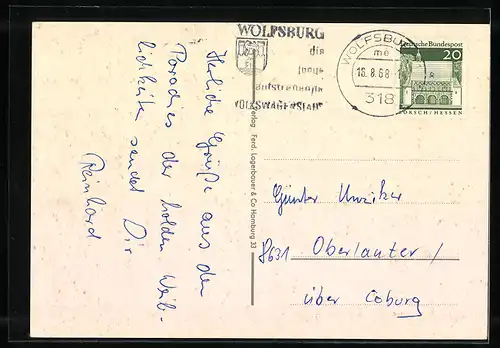 WOLFSBURG
die
junge
aufstrebende
VOLKSWAGENSTADT
WOLFSBURG
mc
16.8.68
318
Deutsche Bundespost
20
LORSCH/HESSEN
Herzliche Grüße aus dem
Paradies der holden Weib-
lichkeiten sendet Dir
Reinhard
Verlag Ferd. Lagerbauer & Co Hamburg 33
Günter
8631 Oberlauter/
über Coburg